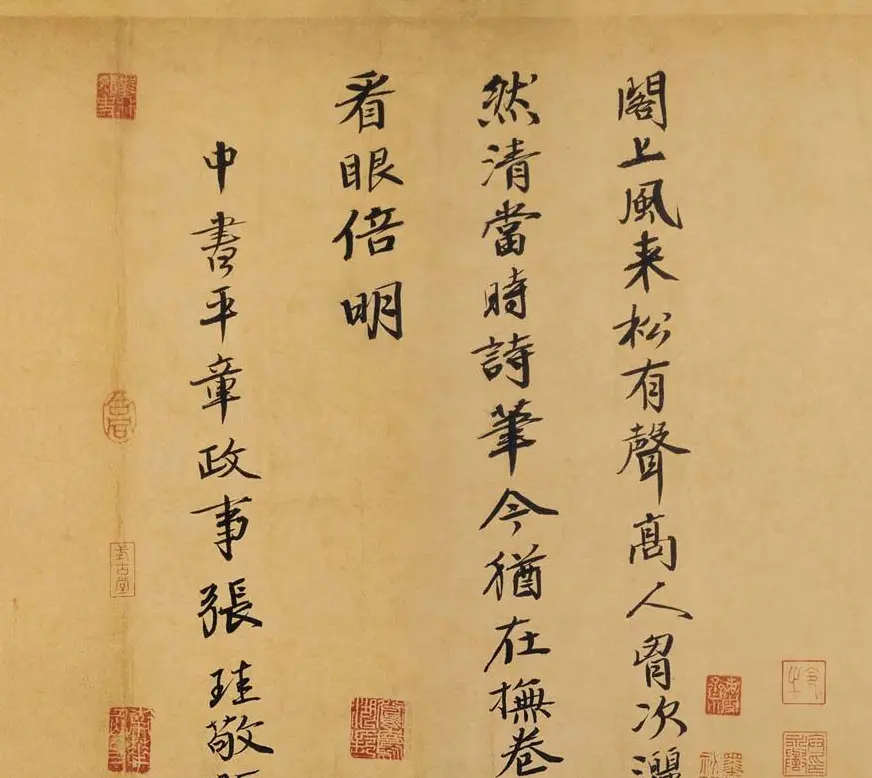 閣上風来松有聲髙人胷次
然清當時詩筆今猶在撫卷
看眼倍明
中書平章政事張珪敬
式古堂
令之